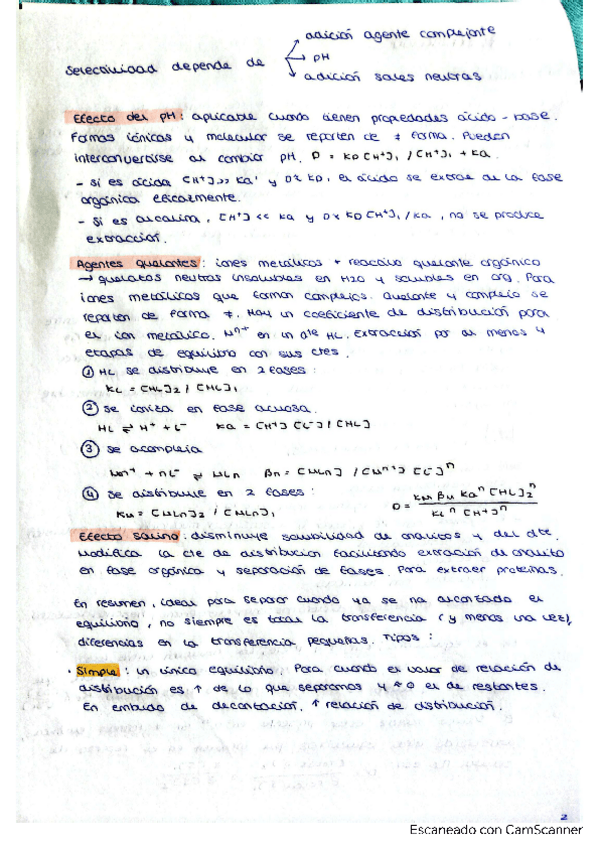 adición agente complejante
Selectividad depende de → pH
adición sales neutras
Efecto del pH: aplicable cuando tienen propiedades ácido-base.
Formas iónicas y molecular se reparten de ≠ forma. Pueden
interconvertirse al cambiar pH. D = KD[H+]1 / [H+]1 + Ka.
- Si es ácida [H+] >> Ka y D ≈ KD, el ácido se extrae de la fase
orgánica eficazmente.
- Si es alcalina, [H+] << Ka y D ≈ KD[H+]1/Ka, no se produce
extracción.
Agentes quelantes: iones metálicos + reactivo quelante orgánico
→ quelatos neutros insolubles en H2O y solubles en org. Para
iones metálicos que forman complejos. Quelante y complejo se
reparten de forma ≠. Hay un coeficiente de distribución para
el ion metálico. Mn+ en un dte HL. Extracción por al menos 4
etapas de equilibrio con sus ctes.
① HL se distribuye en 2 fases:
KL = [HL]2 / [HL]1
② se ioniza en fase acuosa.
HL ⇌ H+ + L- Ka = [H+][L-] / [HL]
③ se acompleja
Mn+ + nL- ⇌ MLn βn = [MLn] / [Mn+][L-]n
④ se distribuye en 2 fases:
KM = [MLn]2 / [MLn]1 D = KM βn Kan [HL]2n / KLn [H+]n
Efecto salino: disminuye solubilidad de analitos y del dte.
Modifica la cte de distribución facilitando extracción de analito
en fase orgánica y separación de fases. Para extraer proteínas.
En resumen, ideal para separar cuando ya se ha alcanzado el
equilibrio, no siempre es total la transferencia (y menos una vez),
diferencias en la transferencia pequeñas. Tipos:
· Simple: un único equilibrio. Para cuando el valor de relación de
distribución es ↑ de lo que separamos y ≈ 0 el de restantes.
En embudo de decantación, ↑ relación de distribución.
2
Escaneado con CamScanner